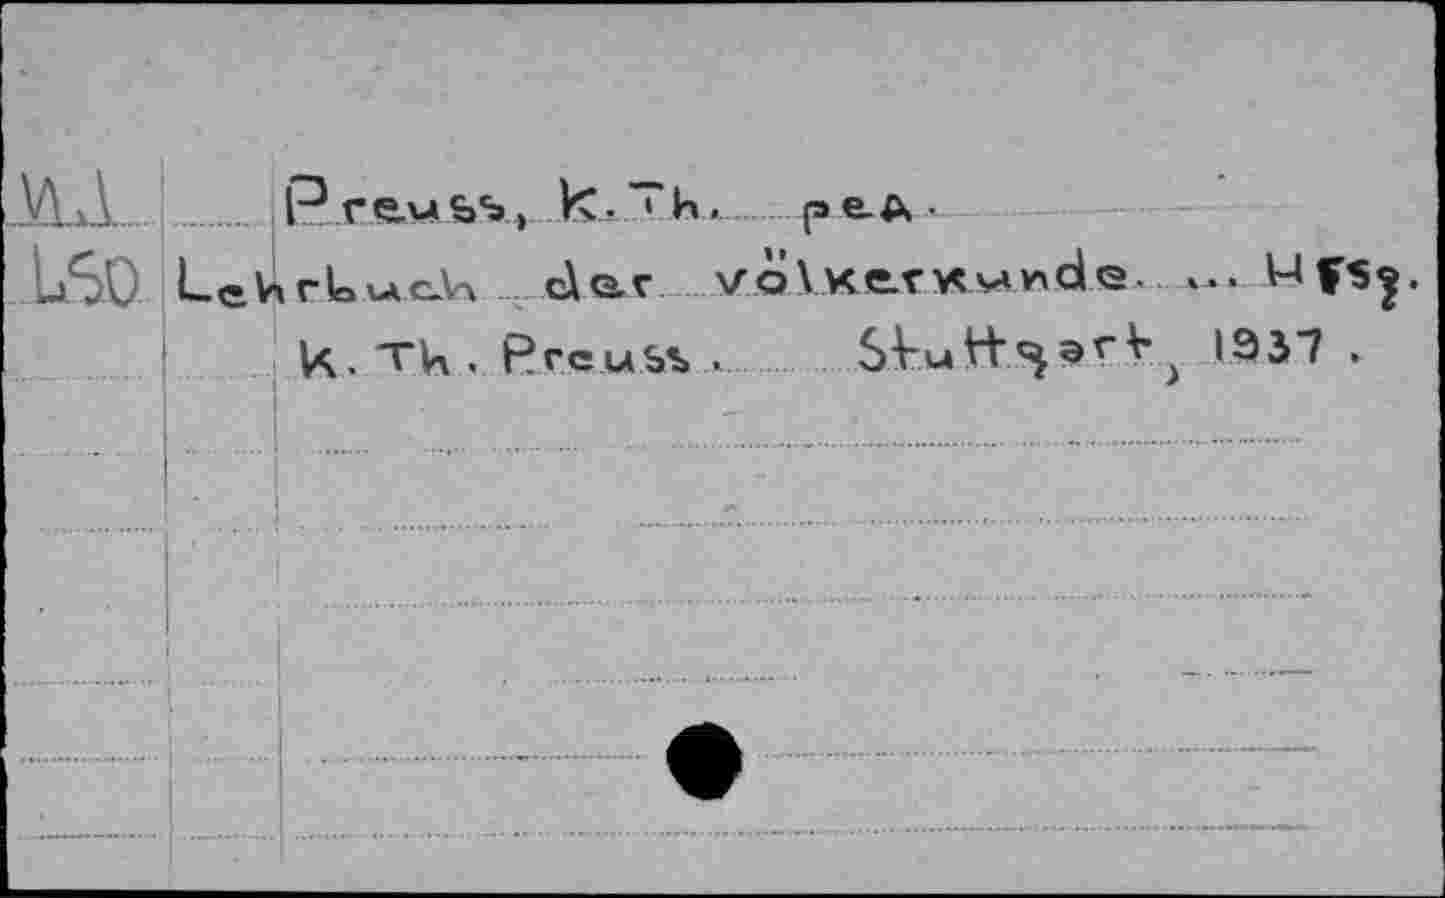 Preuss, K. Th. ред.
L50 Lehrbuch der Völkerkunde. ... Hrsg.
K. Th. Preuss. Stuttgart, 1937.